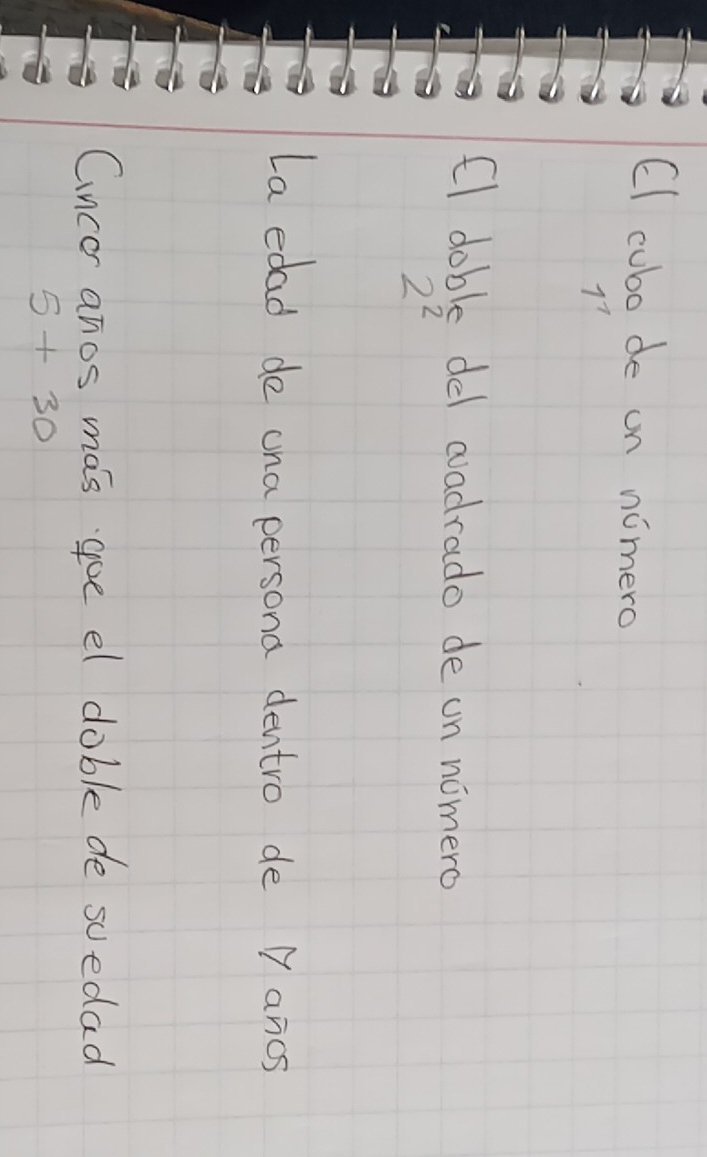 El cubo de un número
1³
El doble del cuadrado de un número
2²
La edad de una persona dentro de Y años
Cinco años más que el doble de su edad
5 + 30